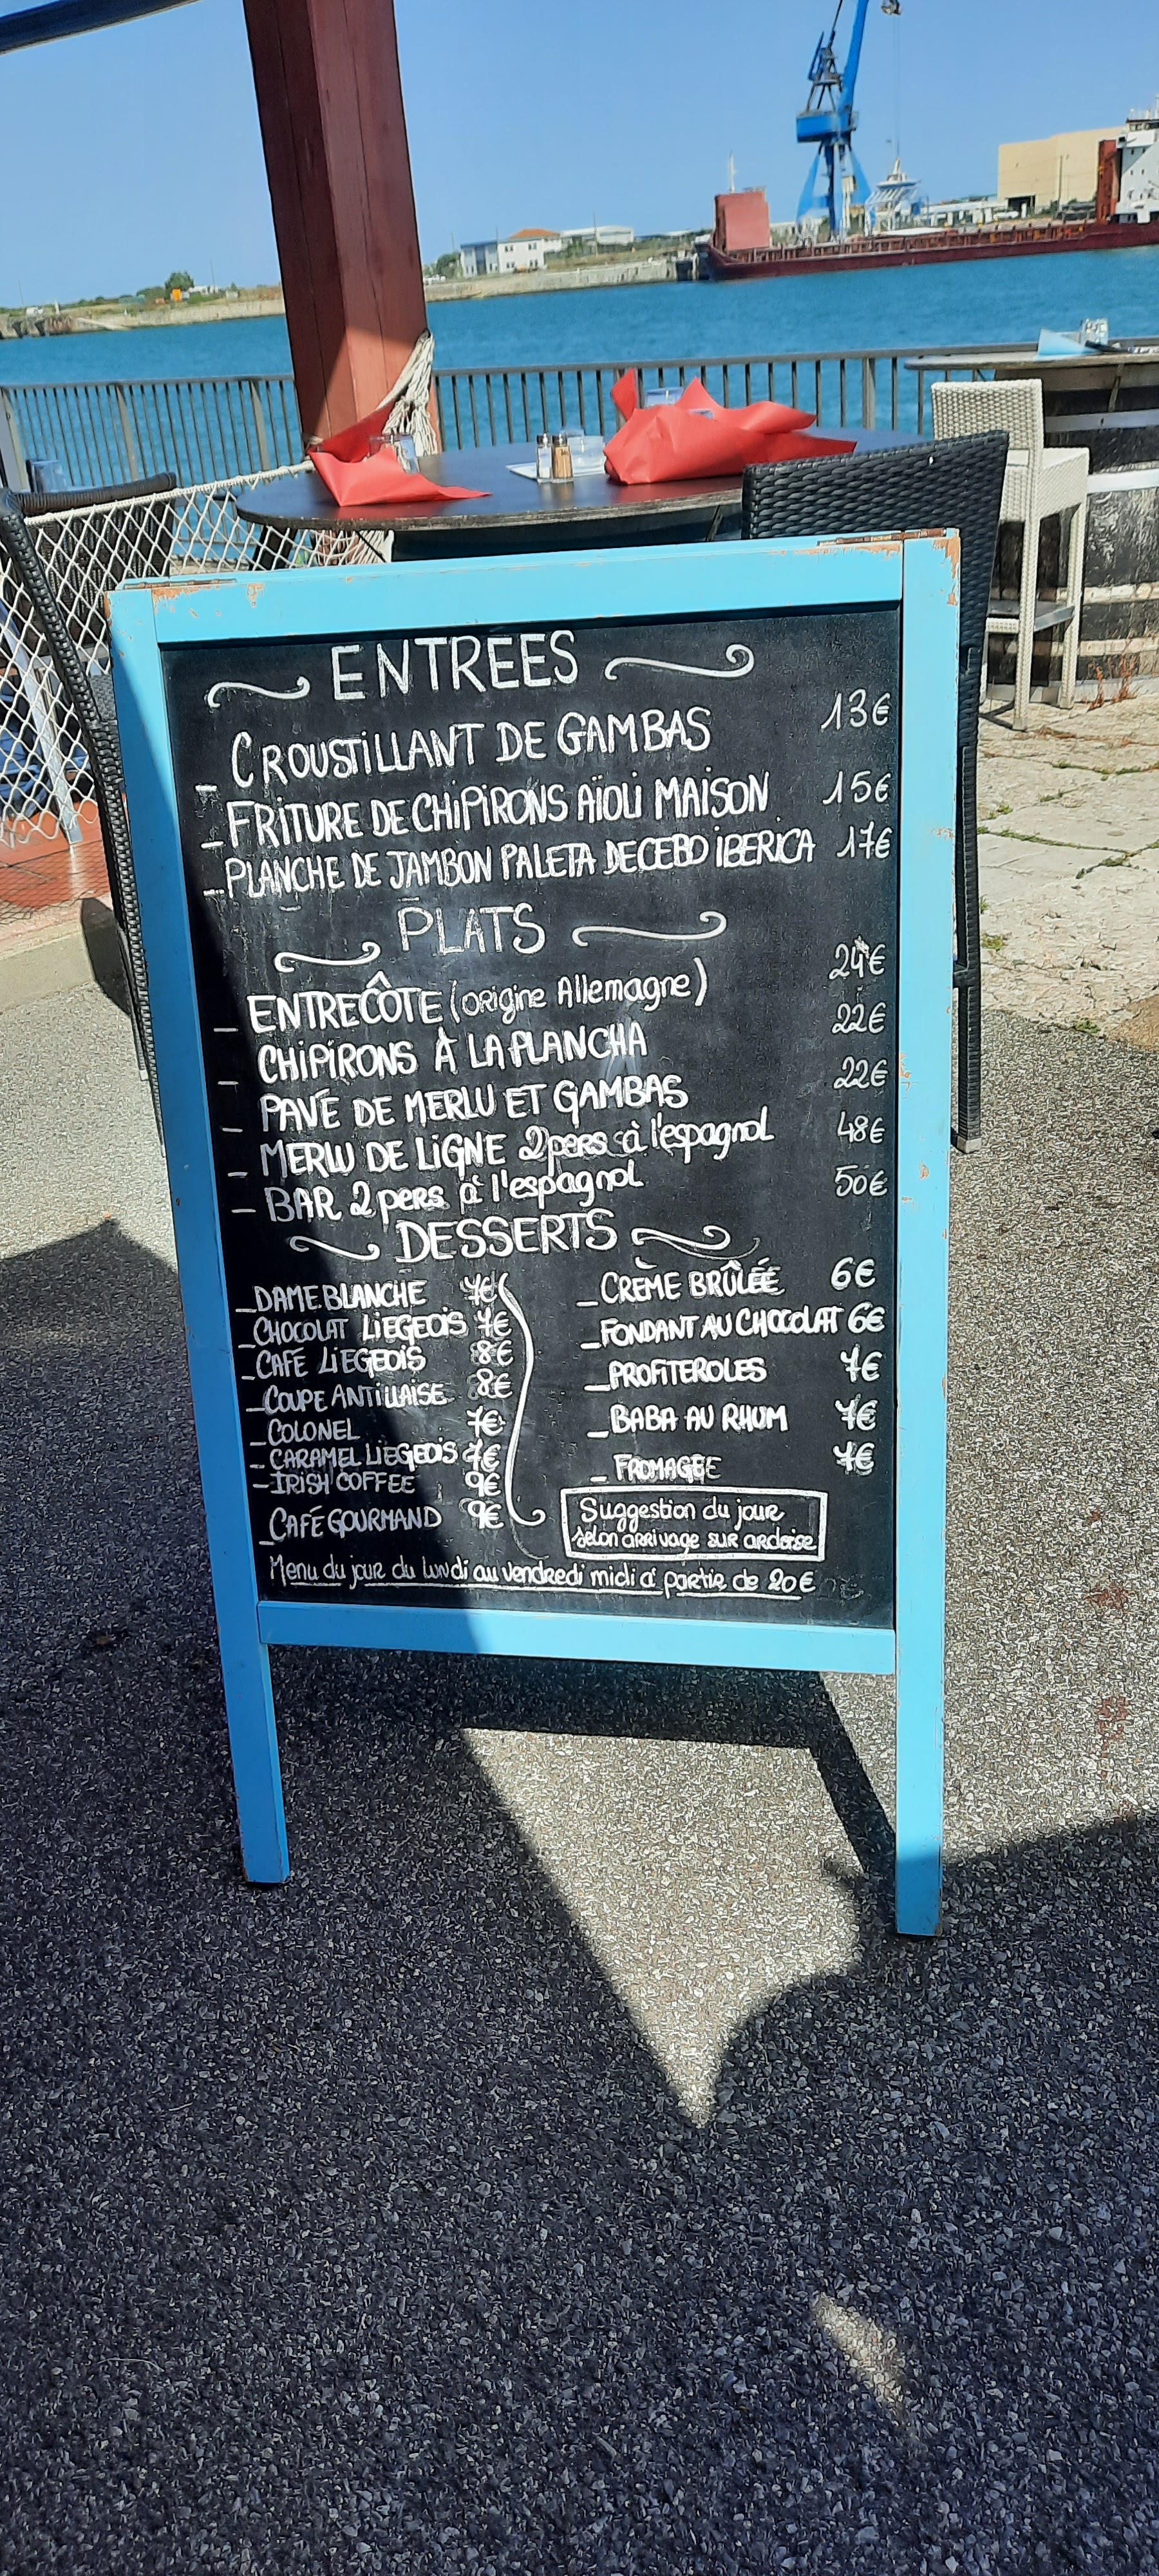 ENTREES
_ CROUSTiLLANT DE GAMBAS 13€
_ FRiTURE DE CHiPiRONS AÏOLi MAiSON 15€
_ PLANCHE DE JAMBON PALETA DE CEBO iBERiCA 17€
PLATS
_ ENTRECÔTE (origine Allemagne) 24€
_ CHiPiRONS À LA PLANCHA 22€
_ PAVÉ DE MERLU ET GAMBAS 22€
_ MERLU DE LiGNE 2 pers à l'espagnol 48€
_ BAR 2 pers à l'espagnol 50€
DESSERTS
_ DAME BLANCHE 7€
_ CHOCOLAT LiEGEOiS 7€
_ CAFÉ LiEGEOiS 8€
_ COUPE ANTiLLAiSE 8€
_ COLONEL 7€
_ CARAMEL LiEGEOiS 7€
_ IRiSH COFFEE 9€
_ CAFÉ GOURMAND 9€
_ CRÈME BRÛLÉE 6€
_ FONDANT AU CHOCOLAT 6€
_ PROFiTEROLES 7€
_ BABA AU RHUM 7€
_ FROMAGE 7€
Suggestion du jour
selon arrivage sur ardoise
Menu du jour du lundi au vendredi midi à partir de 20€